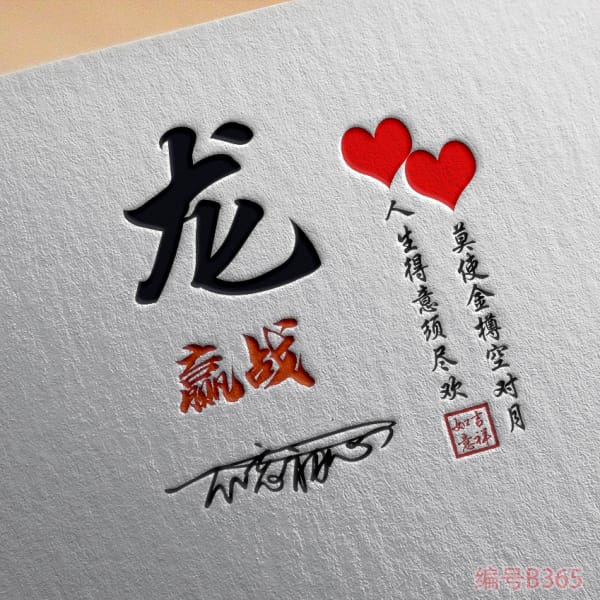 龙
赢战
人生得意须尽欢
莫使金樽空对月
吉祥
如意
编号B365